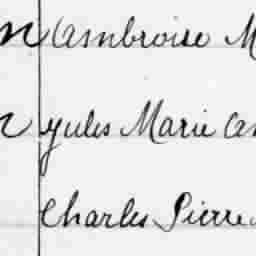 n Ambroise M
n Jules Marie An
Charles Pierre